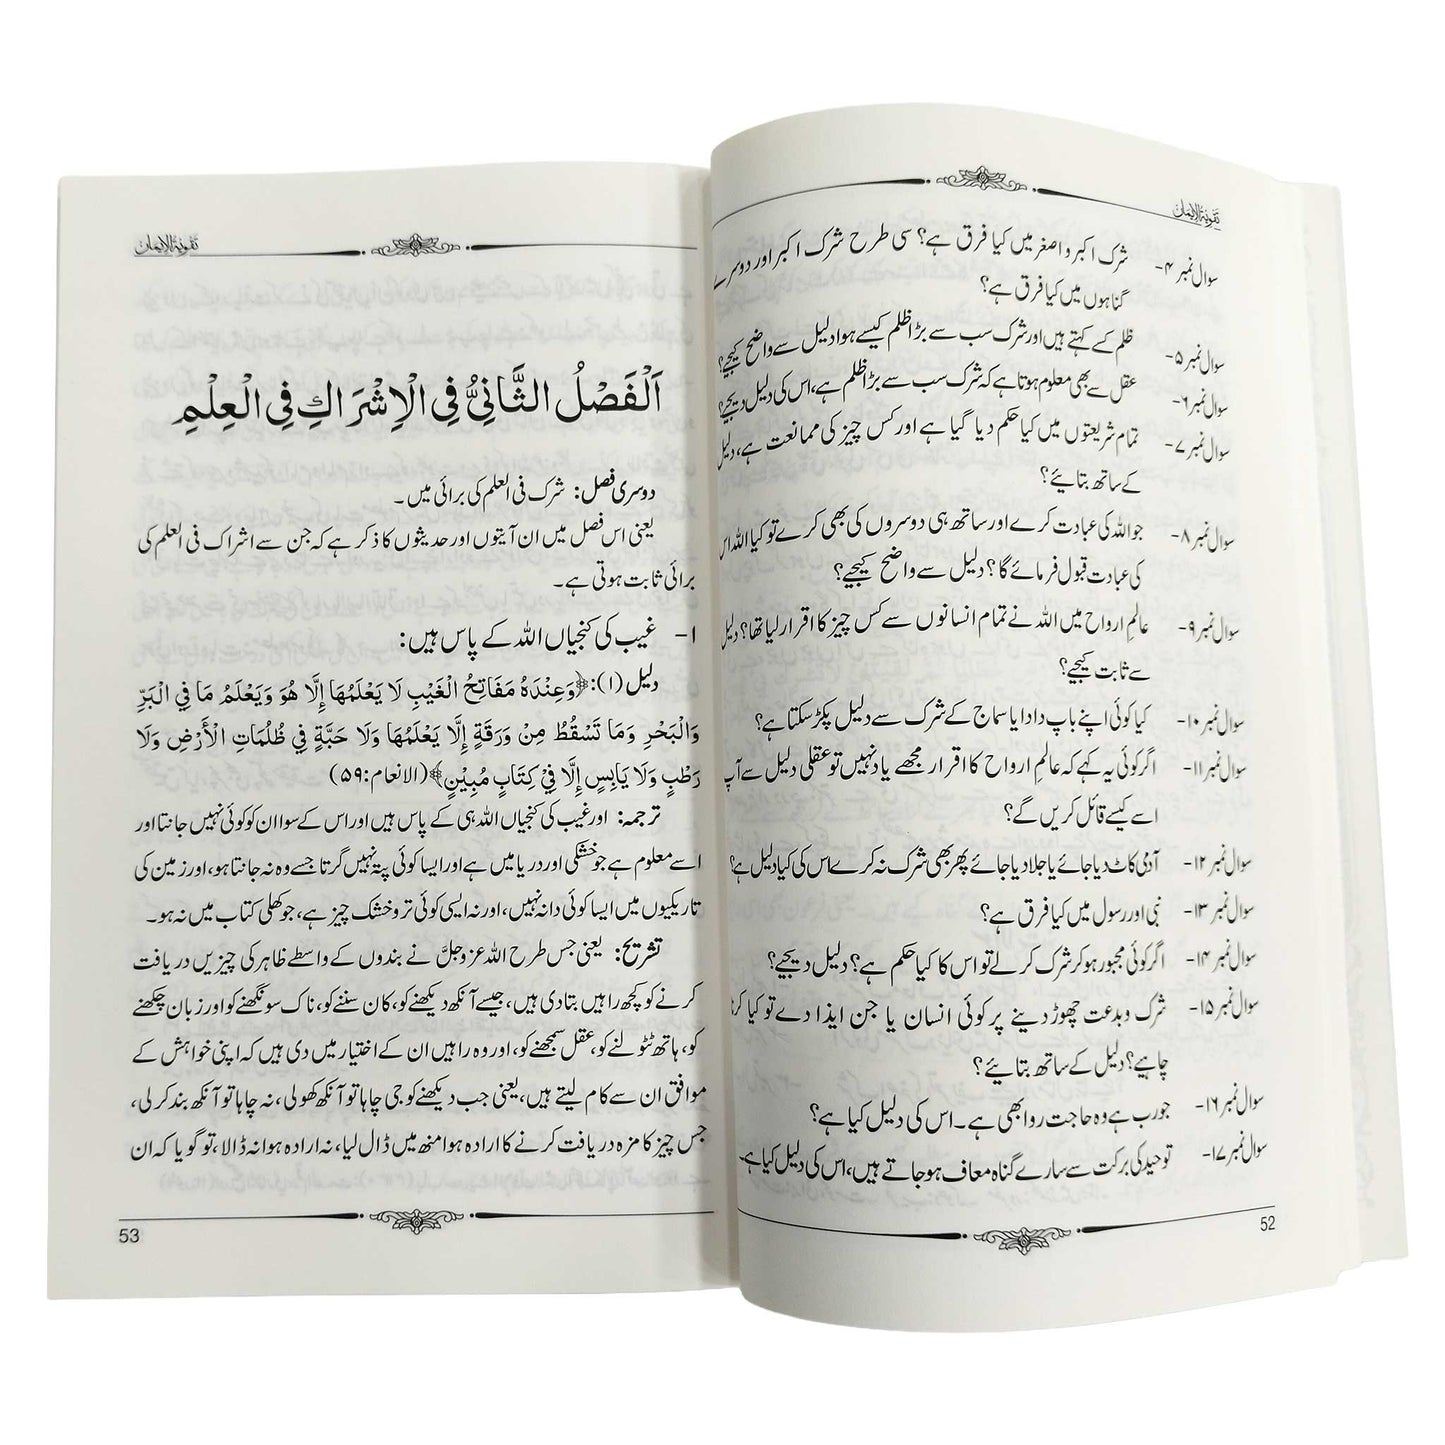 تقویۃ الایمان
سوال نمبر ۴- شرک اکبر و اصغر میں کیا فرق ہے؟ سی طرح شرک اکبر اور دوسرے
گناہوں میں کیا فرق ہے؟
سوال نمبر ۵- ظلم کسے کہتے ہیں اور شرک سب سے بڑا ظلم کیسے ہوا دلیل سے واضح کیجیے؟
سوال نمبر ۶- عقل سے بھی معلوم ہوتا ہے کہ شرک سب سے بڑا ظلم ہے، اس کی دلیل دیجیے؟
سوال نمبر ۷- تمام شریعتوں میں کیا حکم دیا گیا ہے اور کس چیز کی ممانعت ہے، دلیل
کے ساتھ بتائیے؟
سوال نمبر ۸- جو اللہ کی عبادت کرے اور ساتھ ہی دوسروں کی بھی کرے تو کیا اللہ اس
کی عبادت قبول فرمائے گا؟ دلیل سے واضح کیجیے؟
سوال نمبر ۹- عالم ارواح میں اللہ نے تمام انسانوں سے کس چیز کا اقرار لیا تھا؟ دلیل
سے ثابت کیجیے؟
سوال نمبر ۱۰- کیا کوئی اپنے باپ دادا یا سماج کے شرک سے دلیل پکڑ سکتا ہے؟
سوال نمبر ۱۱- اگر کوئی یہ کہے کہ عالمِ ارواح کا اقرار مجھے یاد نہیں تو عقلی دلیل سے آپ
اسے کیسے قائل کریں گے؟
سوال نمبر ۱۲- آدمی کاٹ دیا جائے یا جلا دیا جائے پھر بھی شرک نہ کرے اس کی کیا دلیل ہے؟
سوال نمبر ۱۳- نبی اور رسول میں کیا فرق ہے؟
سوال نمبر ۱۴- اگر کوئی مجبور ہو کر شرک کرلے تو اس کا کیا حکم ہے؟ دلیل دیجیے؟
سوال نمبر ۱۵- شرک و بدعت چھوڑ دینے پر کوئی انسان یا جن ایذا دے تو کیا کرنا
چاہیے؟ دلیل کے ساتھ بتائیے؟
سوال نمبر ۱۶- جو رب ہے وہ حاجت روا بھی ہے۔ اس کی دلیل کیا ہے؟
سوال نمبر ۱۷- توحید کی برکت سے سارے گناہ معاف ہو جاتے ہیں، اس کی دلیل کیا ہے۔
52
تقویۃ الایمان
اَلْفَصْلُ الثَّانِيُّ فِي الْاِشْرَاكِ فِي الْعِلْمِ
دوسری فصل: شرک فی العلم کی برائی میں۔
یعنی اس فصل میں ان آیتوں اور حدیثوں کا ذکر ہے کہ جن سے اشراک فی العلم کی
برائی ثابت ہوتی ہے۔
۱- غیب کی کنجیاں اللہ کے پاس ہیں:
دلیل (۱): ﴿وَعِنْدَهُ مَفَاتِحُ الْغَيْبِ لَا يَعْلَمُهَا إِلَّا هُوَ وَيَعْلَمُ مَا فِي الْبَرِّ
وَالْبَحْرِ وَمَا تَسْقُطُ مِنْ وَرَقَةٍ إِلَّا يَعْلَمُهَا وَلَا حَبَّةٍ فِي ظُلُمَاتِ الْأَرْضِ وَلَا
رَطْبٍ وَلَا يَابِسٍ إِلَّا فِيْ كِتَابٍ مُبِيْنٍ﴾ (الانعام:۵۹)
ترجمہ: اور غیب کی کنجیاں اللہ ہی کے پاس ہیں اور اس کے سوا ان کو کوئی نہیں جانتا اور
اسے معلوم ہے جو خشکی اور دریا میں ہے اور ایسا کوئی پتہ نہیں گرتا جسے وہ نہ جانتا ہو، اور زمین کی
تاریکیوں میں ایسا کوئی دانہ نہیں، اور نہ ایسی کوئی تر و خشک چیز ہے، جو کھلی کتاب میں نہ ہو۔
تشریح: یعنی جس طرح اللہ عز و جلَّ نے بندوں کے واسطے ظاہر کی چیزیں دریافت
کرنے کو کچھ راہیں بتادی ہیں، جیسے آنکھ دیکھنے کو، کان سننے کو، ناک سونگھنے کو اور زبان چکھنے
کو، ہاتھ ٹٹولنے کو، عقل سمجھنے کو، اور وہ راہیں ان کے اختیار میں دی ہیں کہ اپنی خواہش کے
موافق ان سے کام لیتے ہیں، یعنی جب دیکھنے کو جی چاہا تو آنکھ کھولی، نہ چاہا تو آنکھ بند کر لی،
جس چیز کا مزہ دریافت کرنے کا ارادہ ہوا منھ میں ڈال لیا، نہ ارادہ ہوا نہ ڈالا، تو گویا کہ ان
53